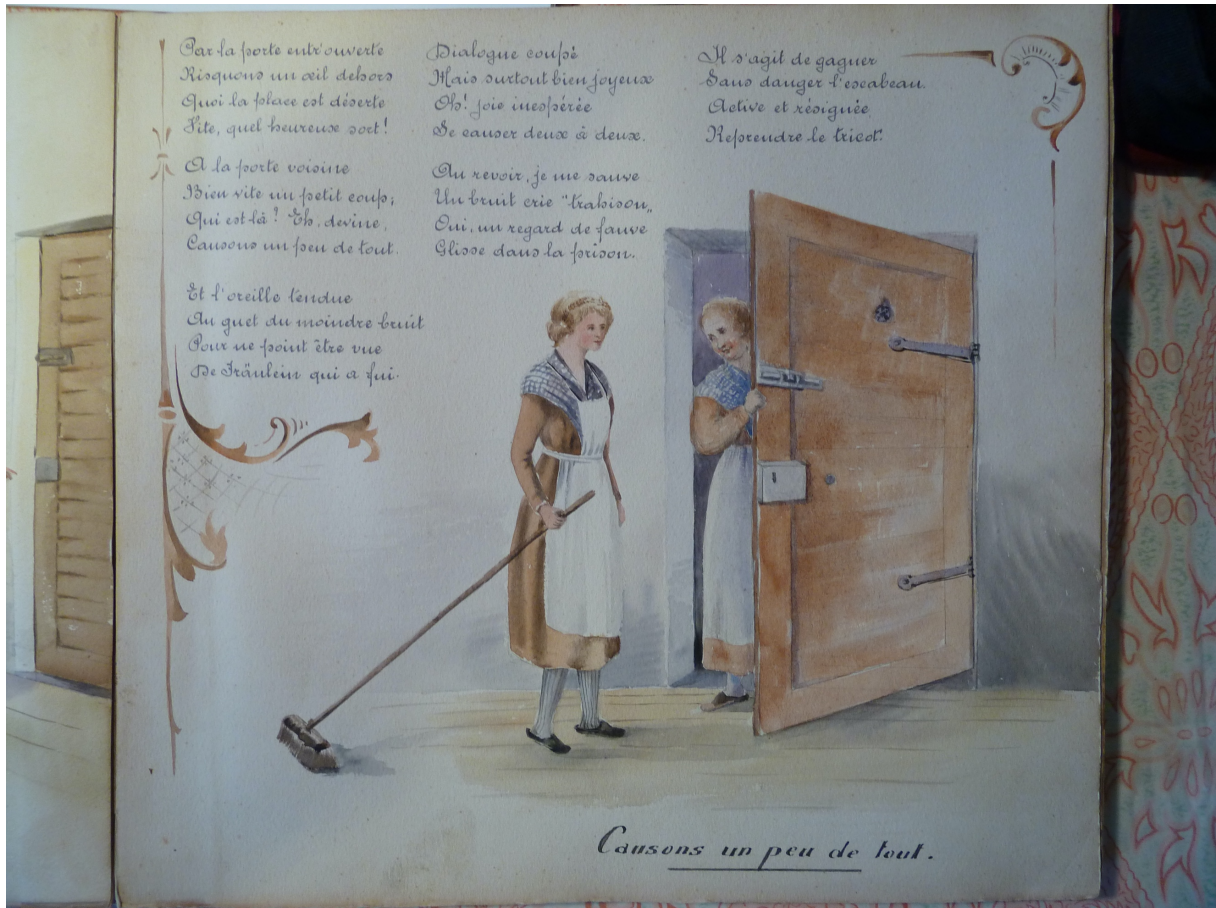 Par la porte entr'ouverte
Risquons un œil dehors
Quoi la place est déserte
Vite, quel heureux sort!
A la porte voisine
Bien vite un petit coup;
Qui est-là? Eh, devine,
Causons un peu de tout.
Et l'oreille tendue
Au guet du moindre bruit
Pour ne point être vue
De Fräulein qui a fui.
Dialogue coupé
Mais surtout bien joyeux
Oh! joie inespérée
Se causer deux à deux.
Au revoir, je me sauve
Un bruit crie "trahison„
Oui, un regard de fauve
Glisse dans la prison.
Il s'agit de gagner
Sans danger l'escabeau.
Active et résignée
Reprendre le tricot.
Causons un peu de tout.